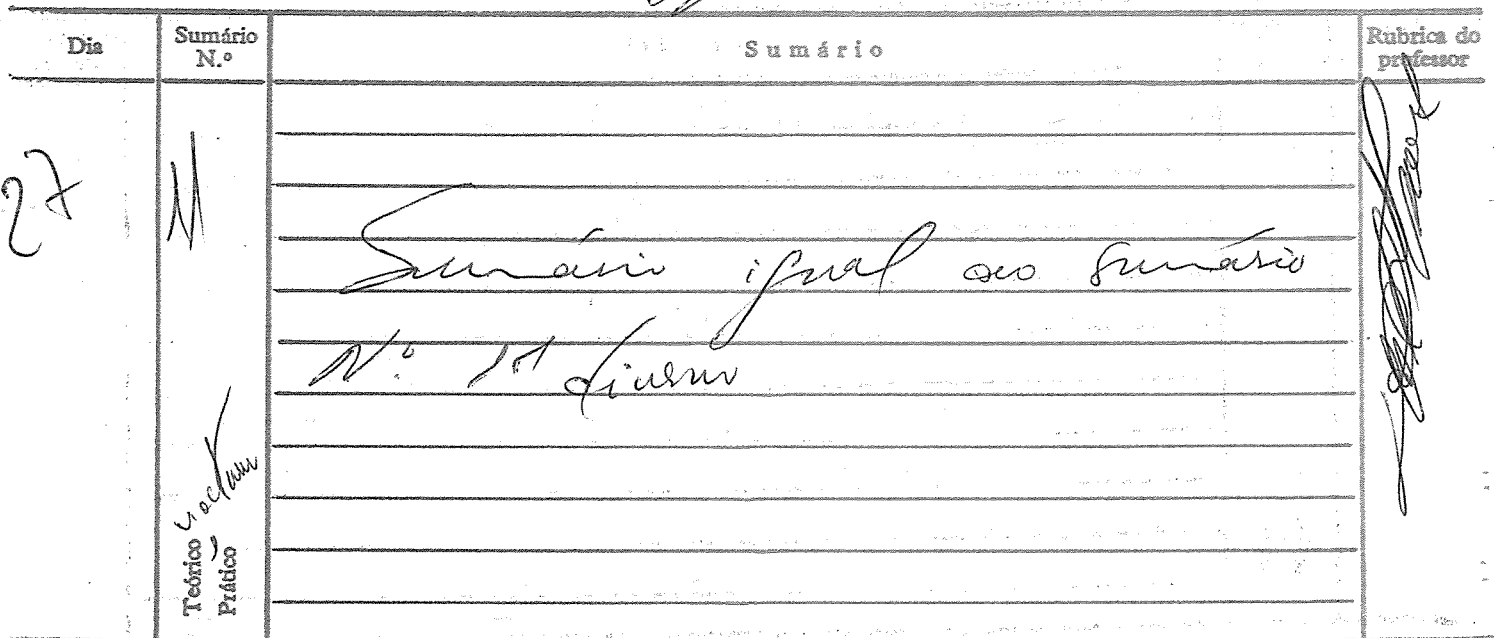 Dia
Sumário
N.º
Sumário
Rubrica do
professor
27
11
Sumário igual ao sumário
N.º 11 diurno
Nocturno
Teórico
Prático